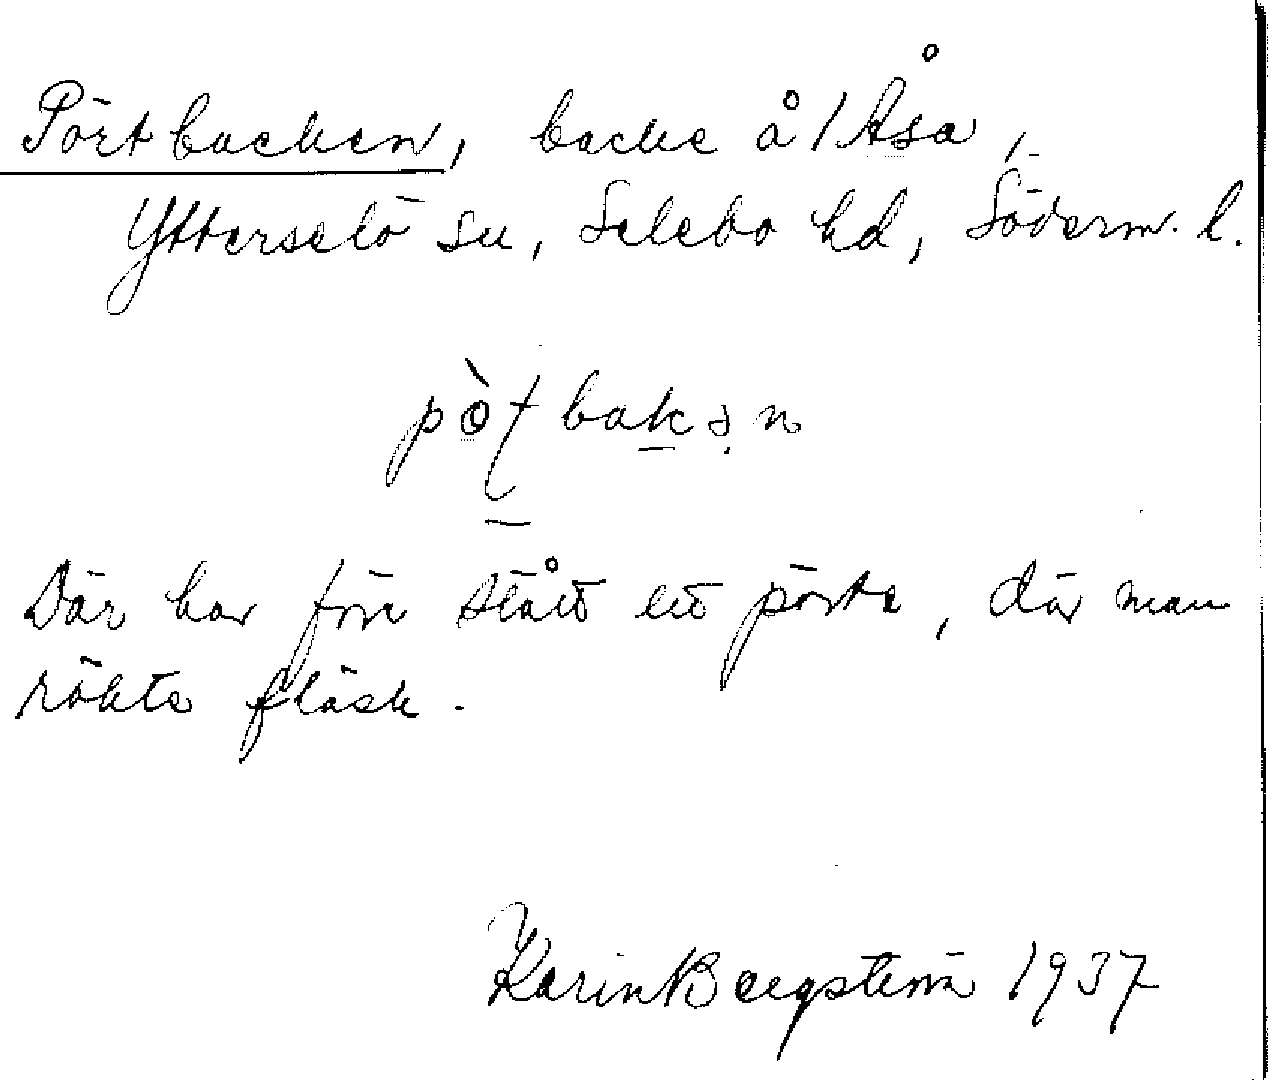 Pörtbacken, backe å l Åsa,
Ytterselö sn, Selebo hd, Söderm. l.
pòtbakən
Där har förr stått ett pörte, där man
rökte fläsk.
Karin Bergström 1937